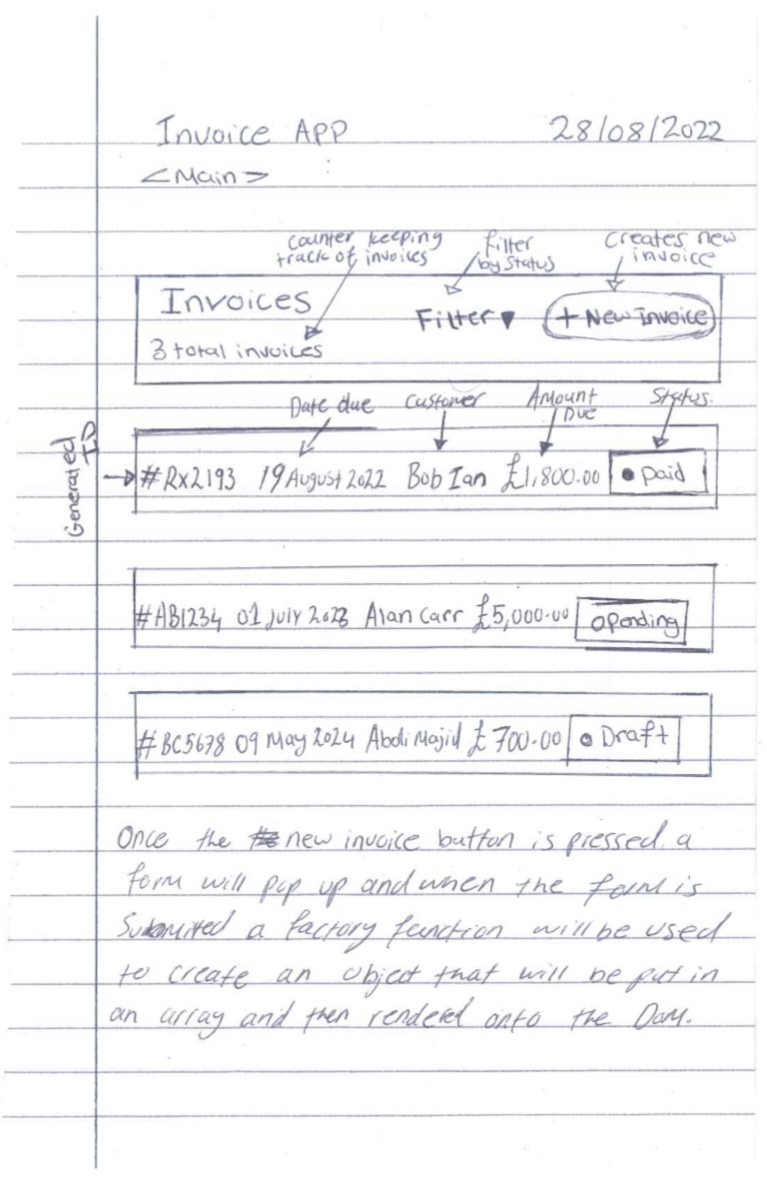 Invoice APP 28/08/2022
<Main>
counter keeping track of invoices
filter by status
Creates new invoice
Invoices
Filter ▼
+ New Invoice
3 total invoices
Date due
Customer
Amount Due
Status
Generated ID
#RX2193 19 August 2022 Bob Ian £1,800.00 • paid
#AB1234 01 July 2023 Alan Carr £5,000.00 pending
#BC5678 09 May 2024 Abdi Majid £700.00 • Draft
Once the new invoice button is pressed a
form will pop up and when the form is
Submitted a factory function will be used
to create an object that will be put in
an array and then rendered onto the Dom.